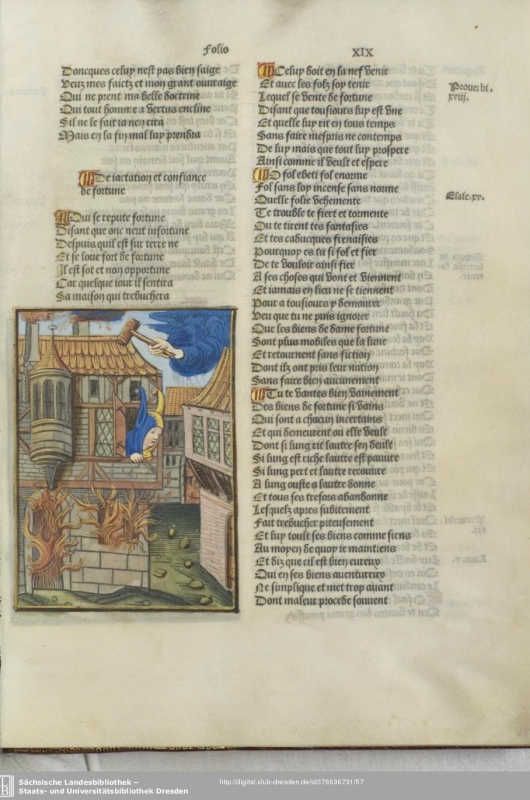 Folio
XIX
Doncques celuy nest pas bien saige
Veuz mes faictz et mon grant ouuraige
Qui ne prent ma belle doctrine
Qui tout homme a vertus encline
Sil ne le fait ia nen rira
Mais en la fin mal luy prendra
De iactation et confiance
de fortune
Qui se repute fortune
Disant que onc neut infortune
Despuis quil est sur terre ne
Et se loue fort de fortune
Il est sot et non opportune
Car quelque iour il sentira
Sa maison qui trebuchera
Celuy doit en la nef venir
Et auec les folz soy tenir
Lequel se vente de fortune
Disant que tousiours luy est vne
Et quelle luy rit en tous temps
Sans faire mespris ne contemps
De luy mais que tout luy prospere
Ainsi comme il veult et espere
O fol ebeti fol enorme
Fol sans loy incense sans norme
Quelle folie vehemente
Te trouble te fiert et tormente
Ou te tirent tes fantasies
Et tes caducques frenaisies
Pourquoy es tu si fol et fier
De te vouloir ainsi fier
A ses choses qui vont et viennent
Et iamais en lieu ne se tiennent
Pour a tousiours y demourer
Veu que tu ne puis ignorer
Que les biens de dame fortune
Sont plus mobiles que la lune
Et retournent sans fiction
Dont ilz ont pris leur nation
Sans faire bien aucunement
Tu te vantes bien vainement
Des biens de fortune si vains
Qui sont a chacun incertains
Et qui demeurent ou elle veult
Dont si lung rit lautre sen deult
Si lung est riche lautre est pauure
Si lung pert et lautre recouure
A lung ouste a lautre donne
Et tous ses tresors abandonne
Lesquelz apres subitement
Fait trebucher piteusement
Et luy toult ses biens comme siens
Au moyen de quoy ie maintiens
Et diz que cil est bien eureux
Qui en ses biens auentureux
Ne simplique et met trop auant
Dont maleur procede souuent
Prouerbi.
xviii.
Esaie.xv.
Sächsische Landesbibliothek –
Staats- und Universitätsbibliothek Dresden
http://digital.slub-dresden.de/id378636731/57